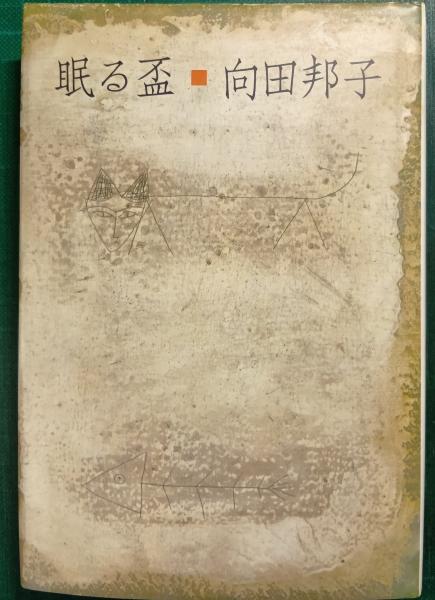 眠る盃■向田邦子